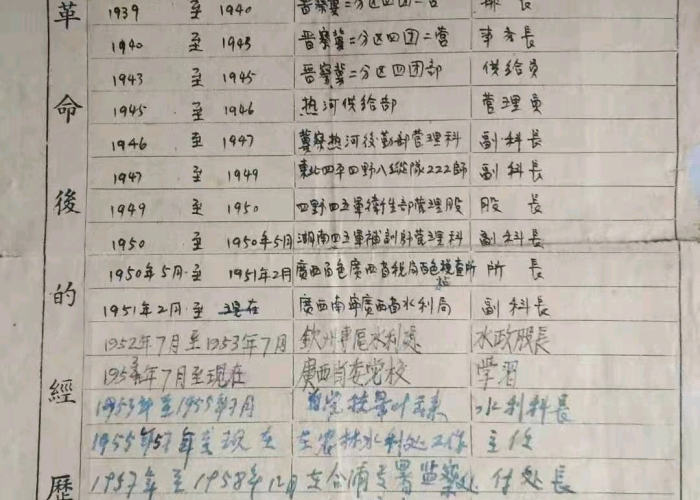 革命後的經歷
1939 至 1940 晋察冀二分区四团一营 排長
1940 至 1943 晋察冀二分区四团二营 事务長
1943 至 1945 晋察冀二分区四团部 供给员
1945 至 1946 热河供给部 管理员
1946 至 1947 冀察热河後勤部管理科 副科長
1947 至 1949 東北四平四野八縱隊222師 副科長
1949 至 1950 四野四五軍衛生部管理股 股長
1950 至 1950年5月 湖南四五軍補訓師管理科 副科長
1950年5月 至 1951年2月 廣西百色廣西省税局百色检查所 所長
1951年2月 至 现在 廣西南寧廣西省水利局 副科長
1952年7月至1953年7月 欽州專區水利處 水政股長
7月至现在 廣西省委党校 学習
1953年至1955年 水利科長
1955年 至现在 在农林水利处工作 主任
1957年至1958年12月 在合浦專署监察处 付处長